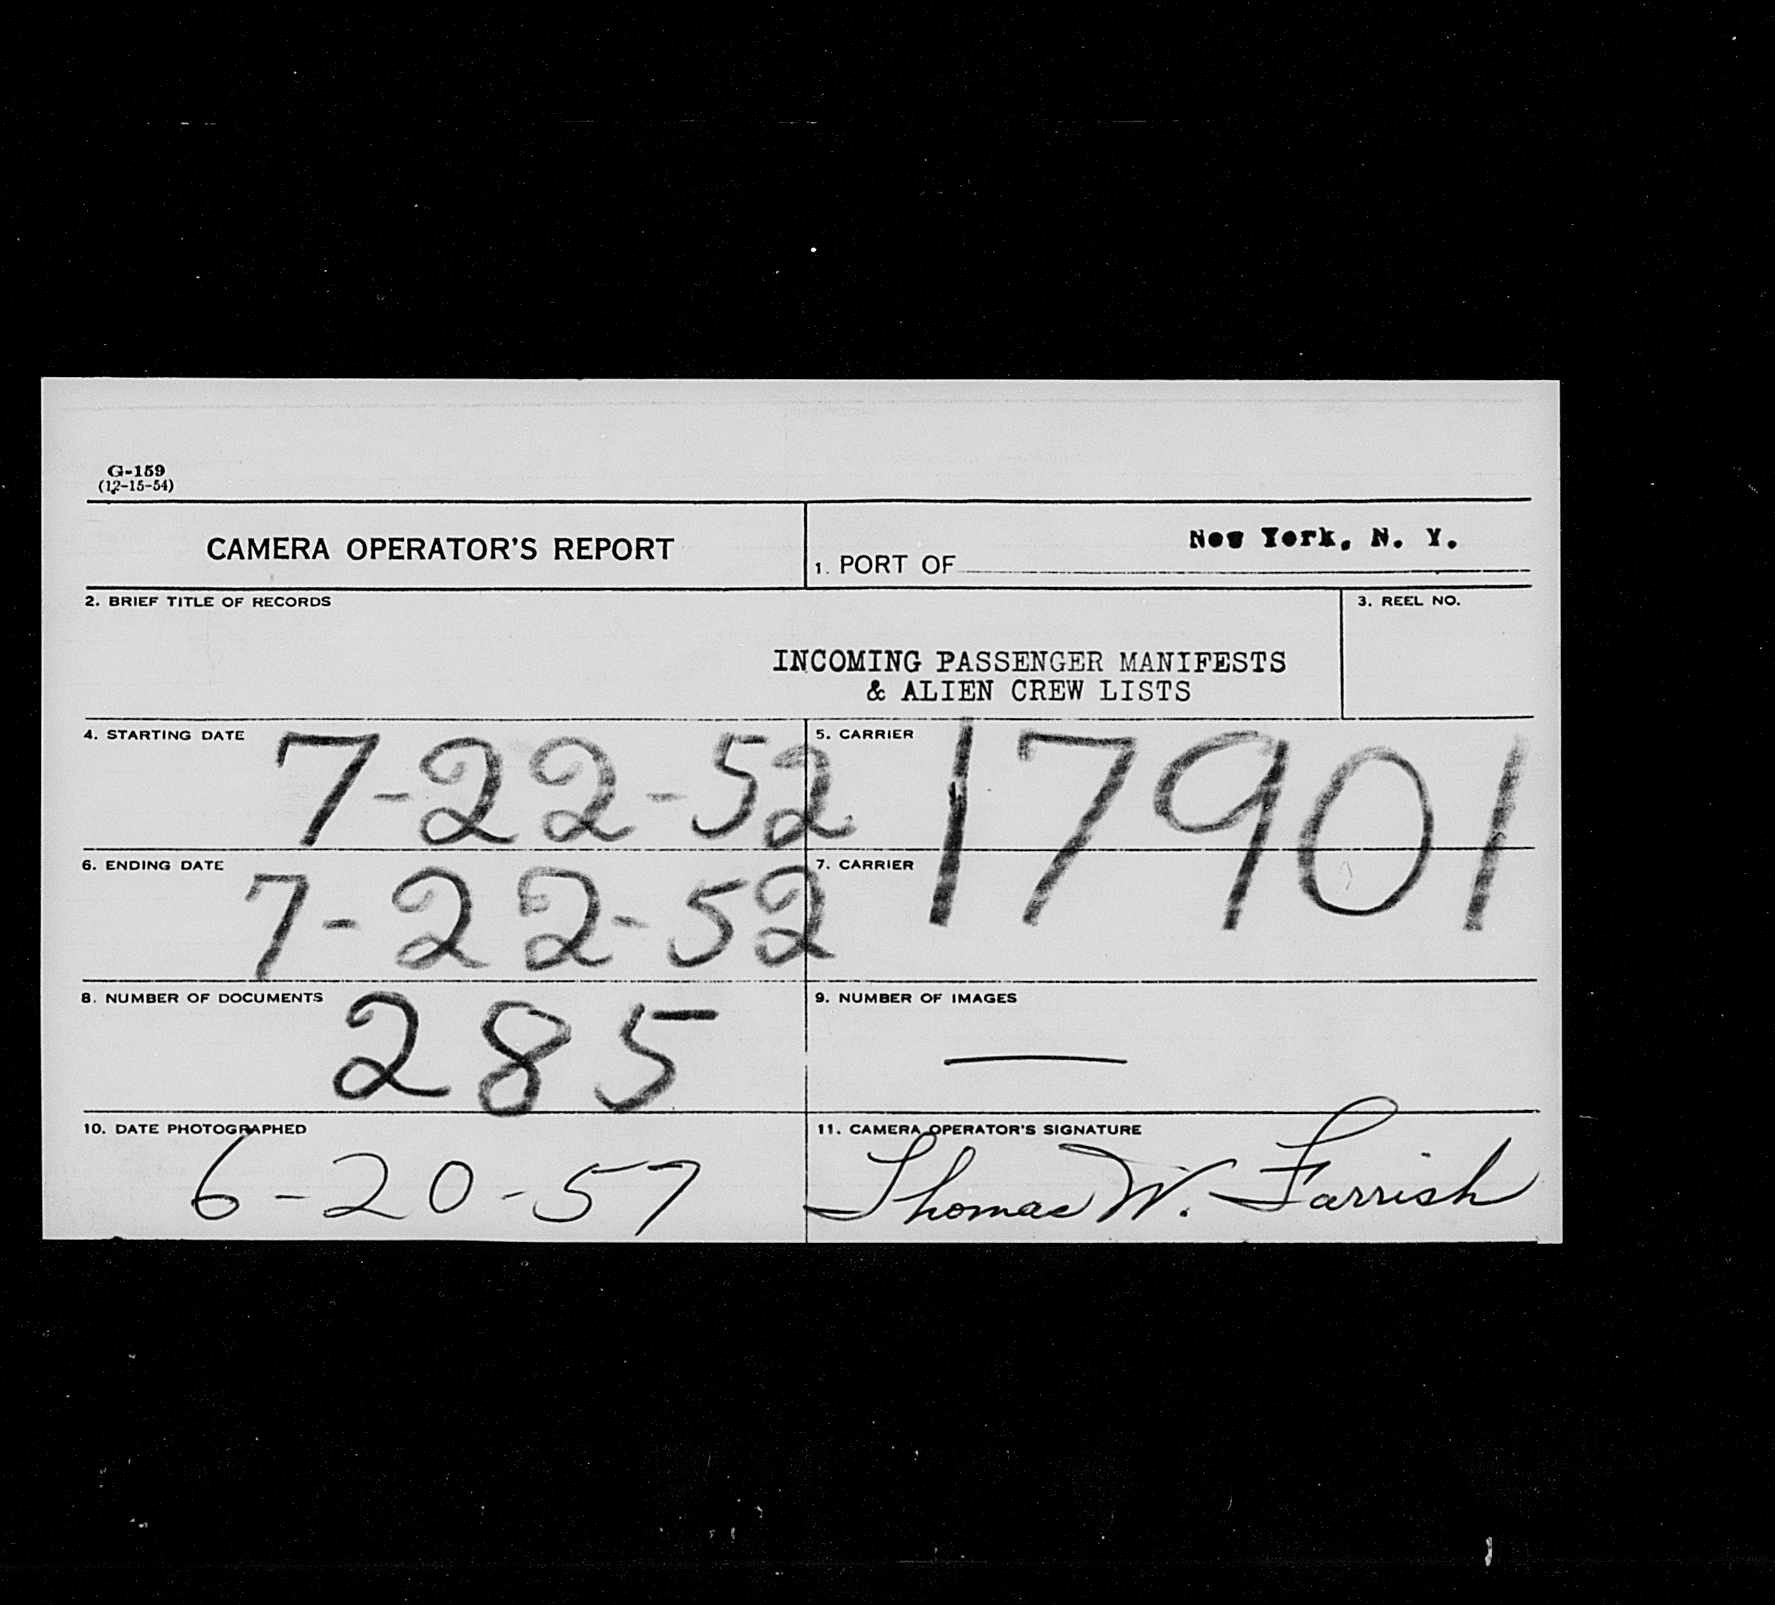 G-159
(12-15-54)
CAMERA OPERATOR'S REPORT
1. PORT OF New York, N. Y.
2. BRIEF TITLE OF RECORDS
INCOMING PASSENGER MANIFESTS
& ALIEN CREW LISTS
3. REEL NO.
4. STARTING DATE 7-22-52
5. CARRIER
17901
6. ENDING DATE 7-22-52
7. CARRIER
8. NUMBER OF DOCUMENTS 285
9. NUMBER OF IMAGES —
10. DATE PHOTOGRAPHED
6-20-57
11. CAMERA OPERATOR'S SIGNATURE
Thomas W. Farrish